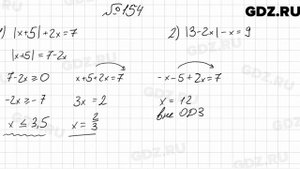 GDZ.RU
№ 154
1) |x+5|+2x=7
|x+5|=7-2x
7-2x≥0
-2x≥-7
x≤3,5
x+5+2x=7
3x=2
x=2/3
-x-5+2x=7
x=12
вне ОДЗ
2) |3-2x|-x=9
GDZ.RU